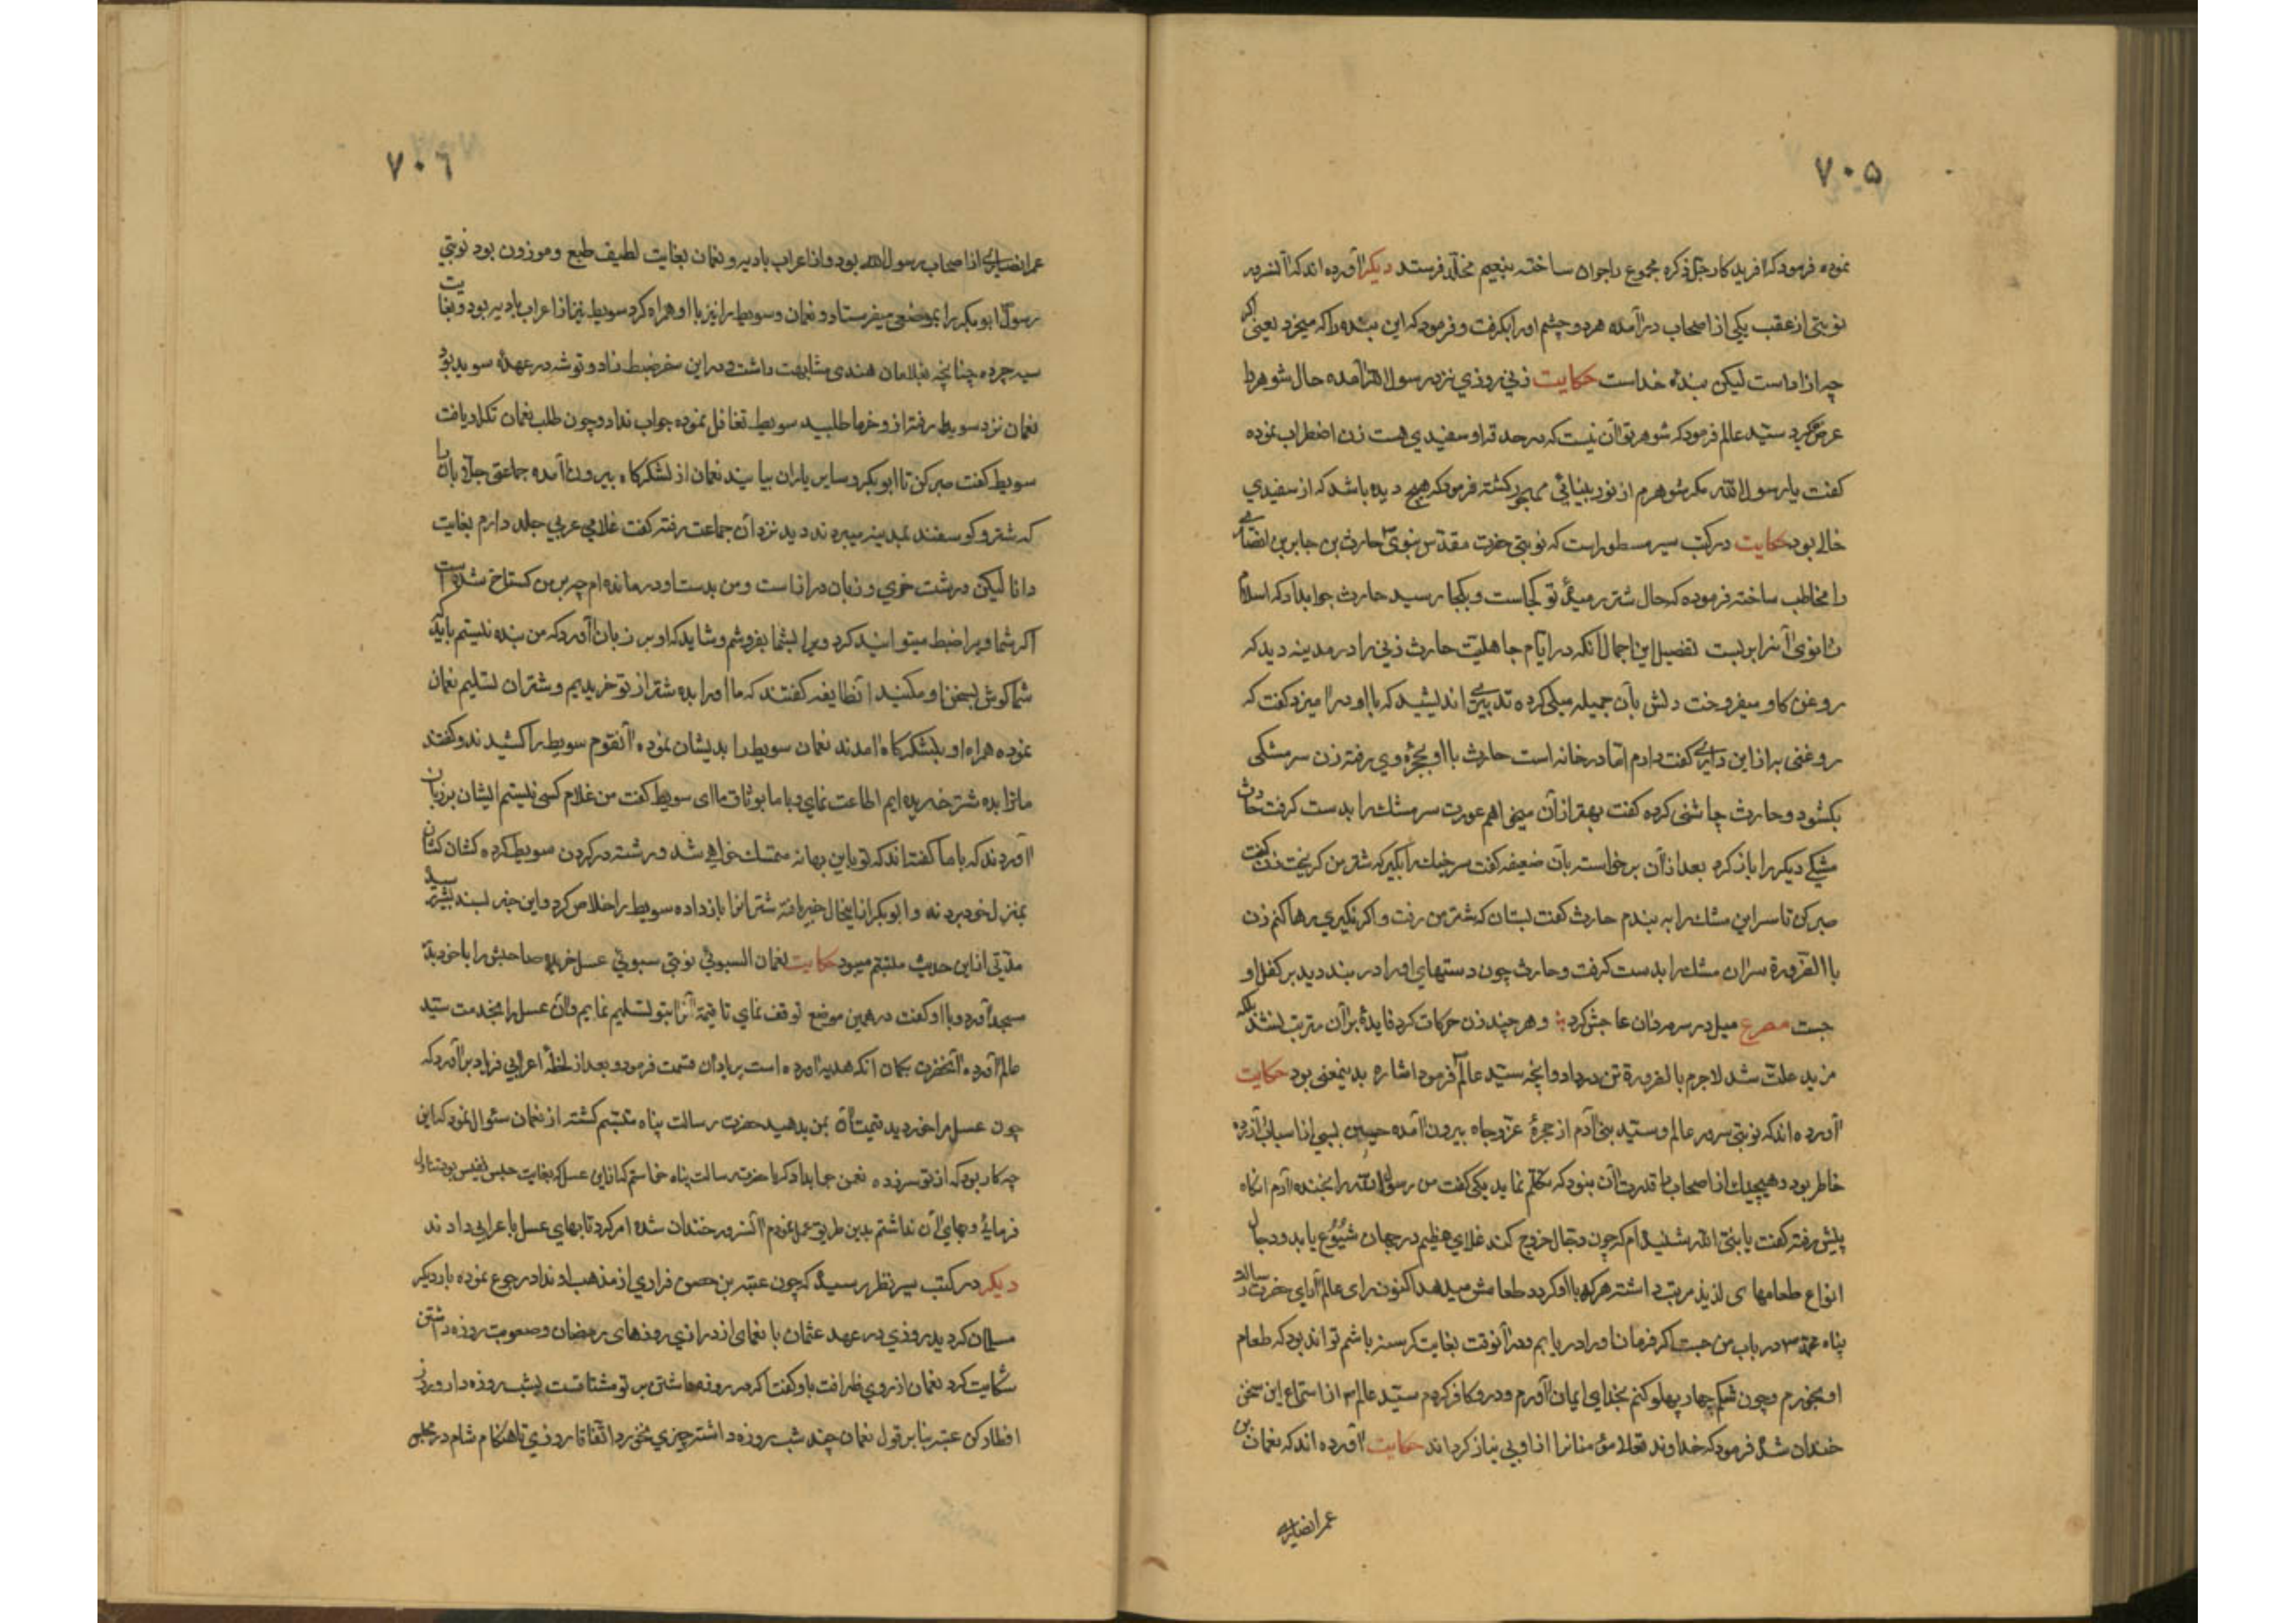 ۷۰۵
نموده فرمود که آفریدکار جل ذکره مجموع را جوان ساخته بنعیم مخلد فرستد دیکر آورده اند که آنسرور
نوبتی از عقب یکی از اصحاب در آمده هر دو چشم او را بکرفت و فرمود که این بنده را که میخرد یعنی اکر
چه ازاد است لیکن بنده خداست حکایت زنی روزی نزد رسول الله آمده حال شوهر را
عرض میکرد سید عالم فرمود که شوهر تو آن نیست که در حدقه او سفیدی هست زن اضطراب نموده
کفت یا رسول الله مکر شوهرم از نور بینائی مهجور کشته فرمود که هیچ دیده باشد که از سفیدی
خالی بود حکایت در کتب سیر مسطور است که نوبتی حضرت مقدس نبوی حارث بن جابر بن انصاری
را مخاطب ساخته فرموده که حال شتر رمیدهٔ تو کجاست و بکجا رسید حارث جوابداد که اسلام
زانوی آنرا بر بست تفصیل این اجمال آنکه در ایام جاهلیت حارث زنی را در مدینه دید که
روغن کاو میفروخت دلش بآن جمیله میلی کرده تدبیری اندیشید که با او در آمیزد کفت که
روغنی به از این داری کفت دارم اما در خانه است حارث با او بحجرهٔ وی رفته زن سر مشکی
بکشود و حارث چاشنی کرده کفت بهتر از آن میخواهم عورت سر مشک را بدست کرفت حارث
مشکی دیکر را باز کرد بعد از آن برخواسته بآن ضعیفه کفت سر خیک را بکیر که شتر من کریخت زن کفت
صبر کن تا سر این مشک را به بندم حارث کفت بستان که شتر من رفت و اکر نکیری رها کنم زن
با الضرورة سر آن مشک را بدست کرفت و حارث چون دستهای او را در بند دید بر کفل او
جست مصرع میل در سرمه دان عاجش کرد و هر چند زن حرکات کرد فایدهٔ بر آن مترتب نشد بلکه
مزید علت شد لاجرم بالضرورة تن در داد و آنچه سید عالم فرمود اشاره بدینمعنی بود حکایت
آورده اند که نوبتی سرور عالم و سید بنی آدم از حجرهٔ عز و جاه بیرون آمده بسی از اسباب آزرده
خاطر بود و هیچیک از اصحاب را قدرت آن نبود که تکلم نماید یکی کفت من رسول الله را بخنده آدم انکاه
پیش رفته کفت یا نبی الله شنیده ام که چون دجال خروج کند غلای عظیم در جهان شیوع یابد و دجال
انواع طعامهای لذیذ مرتب داشته هر که با او کرود طعامش میدهد اکنون رای عالم آرای حضرت رسالت
پناه محمد در باب من چیست اکر فرمان او را دریابم و در آنوقت بغایت کرسنه باشم تواند بود که طعام
او بخورم و چون شکم چهار پهلو کنم بخدای ایمان آورم و درو کافر کردم سید عالم از استماع این سخن
خندان شد فرمود که خداوند تعالی مؤمنانرا از او بی نیاز کرداند حکایت آورده اند که نعمان بن
عمر انصاری
۷۰۶
عمر انصاری از اصحاب رسول الله بود و از اعراب بادیه و نعمان بغایت لطیف طبع و موزون بود نوبتی
رسول ابو بکر را بموضعی میفرستاد و نعمان و سویط را نیز با او همراه کرد سویط نیز از اعراب بادیه بود و بغایت
سیه چرده چنانچه بغلامان هندی مشابهت داشت و در این سفر ضبط زاد و توشه در عهدهٔ سوید بود
نعمان نزد سویط رفته از و خرما طلبید سویط تغافل نموده جواب نداد و چون طلب نعمان تکرار یافت
سویط کفت صبر کن تا ابو بکر و سایر یاران بیایند نعمان از لشکرکاه بیرون آمده جماعتی جلابان را
که شتر و کوسفند بمدینه میبردند دید نزد آن جماعت رفته کفت غلامی عربی جلد دارم بغایت
دانا لیکن درشت خوی و زبان دراز است و من بدست او درمانده ام چه بر من کستاخ شده است
اکر شما ویرا ضبط میتوانید کرد ویرا بشما بفروشم و شاید که او بر زبان آورد که من بنده نیستم باید که
شما کوش بسخن او مکنید آنطایفه کفتند که ما او را بده شتر از تو خریدیم و شتران تسلیم نعمان
نموده همراه او بلشکرکاه آمدند نعمان سویط را بدیشان نموده آنقوم سویط را کشیدند و کفتند
ما ترا بده شتر خریده ایم اطاعت نمای و با ما بوثاق ما ای سویط کفت من غلام کسی نیستم ایشان بر زبان
آوردند که با ما کفته اند که تو باین بهانه متمسک خواهی شد و رشته در کردن سویط کرده کشان کشان
بمنزل خود بردند و ابو بکر از اینحال خبر یافته شترانرا باز داده سویط را خلاص کرد و این خبر بسید بشر رسید
مدتی از این حدیث متبسم میبود حکایت نعمان السبوئی نوبتی سبوئی عسل خریده صاحبش را با خود بدر
مسجد آورد و با او کفت در همین موضع توقف نمای تا قیمة آنرا بتو تسلیم نمایم و آن عسل را بخدمت سید
عالم آورده آنحضرت بکمان انکه هدیه آورده است بر یاران قسمت فرمود و بعد از لحظهٔ اعرابی فریاد بر آورد که
چون عسل مرا خوردید قیمت آن بمن بدهید حضرت رسالت پناه متبسم کشته از نعمان سئوال نمود که این
چه کار بود که از تو سر زده نعمن جوابداد که یا حضرت رسالت پناه خواستم که از این عسل که بغایت جنس نفیس بود تناول
فرمائی و بهای آن نداشتم بدین طریق عمل نمودم آنسرور خندان شده امر کرد تا بهای عسل با عرابی دادند
دیکر در کتب سیر بنظر رسیده که چون عتبه بن حصن فراری از مذهب ارتداد رجوع نموده بار دیکر
مسلمان کردید روزی در عهد عثمان با نعمان از درازی روزهای رمضان و صعوبت روزه داشتن
شکایت کرد نعمان از روی ظرافت باو کفت اکر در روز روزه داشتن بر تو مشتاقست بشب روزه دار و بروز
افطار کن عتبه بنابر قول نعمان چند شب روزه داشته چیزی نخورد اتفاقا روزی تا هنکام شام در مجلس